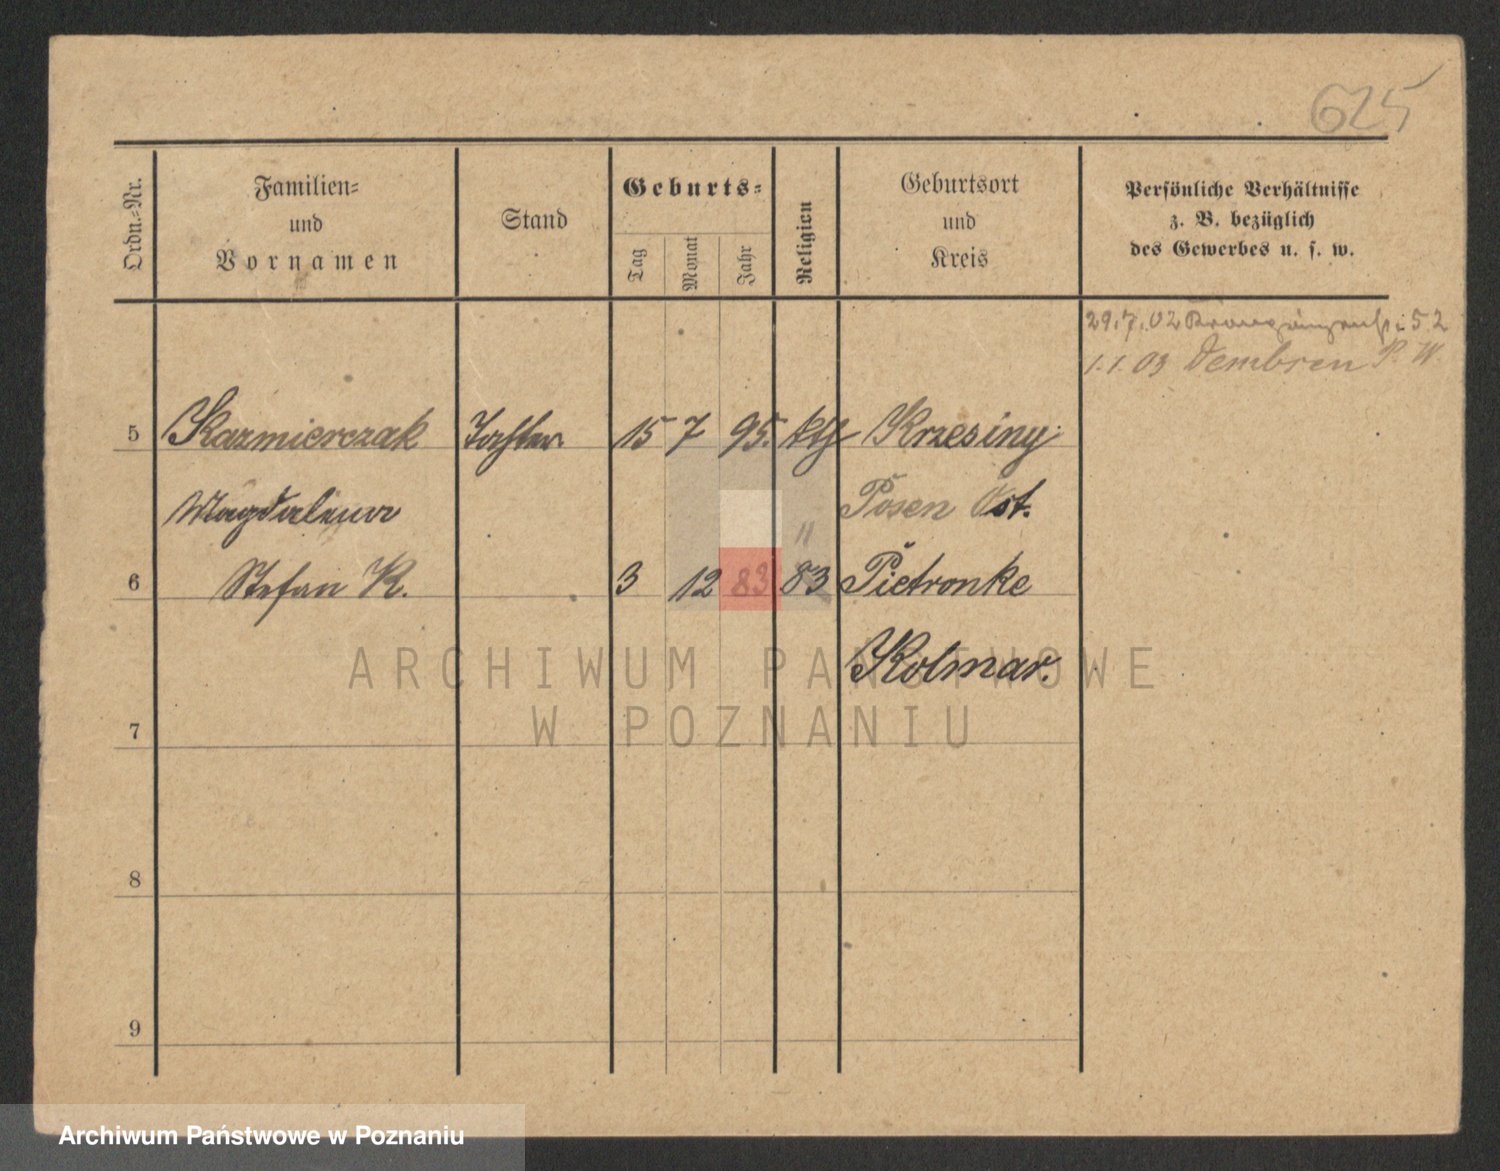 625
Ordn.-Nr.
Familien-
und
Vornamen
Stand
Geburts-
Tag
Monat
Jahr
Religion
Geburtsort
und
Kreis
Persönliche Verhältnisse
z. B. bezüglich
des Gewerbes u. s. w.
29.7.02 52
1.1.03 Dembsen P. W.
5 Kazmierczak Tochter 15 7 95. kth Krzesiny
Magdalena Posen Ost.
6 Stefan K. 3 12 83 83 Pietronke
Kolmar.
ARCHIWUM PAŃSTWOWE
W POZNANIU
7
8
9
Archiwum Państwowe w Poznaniu